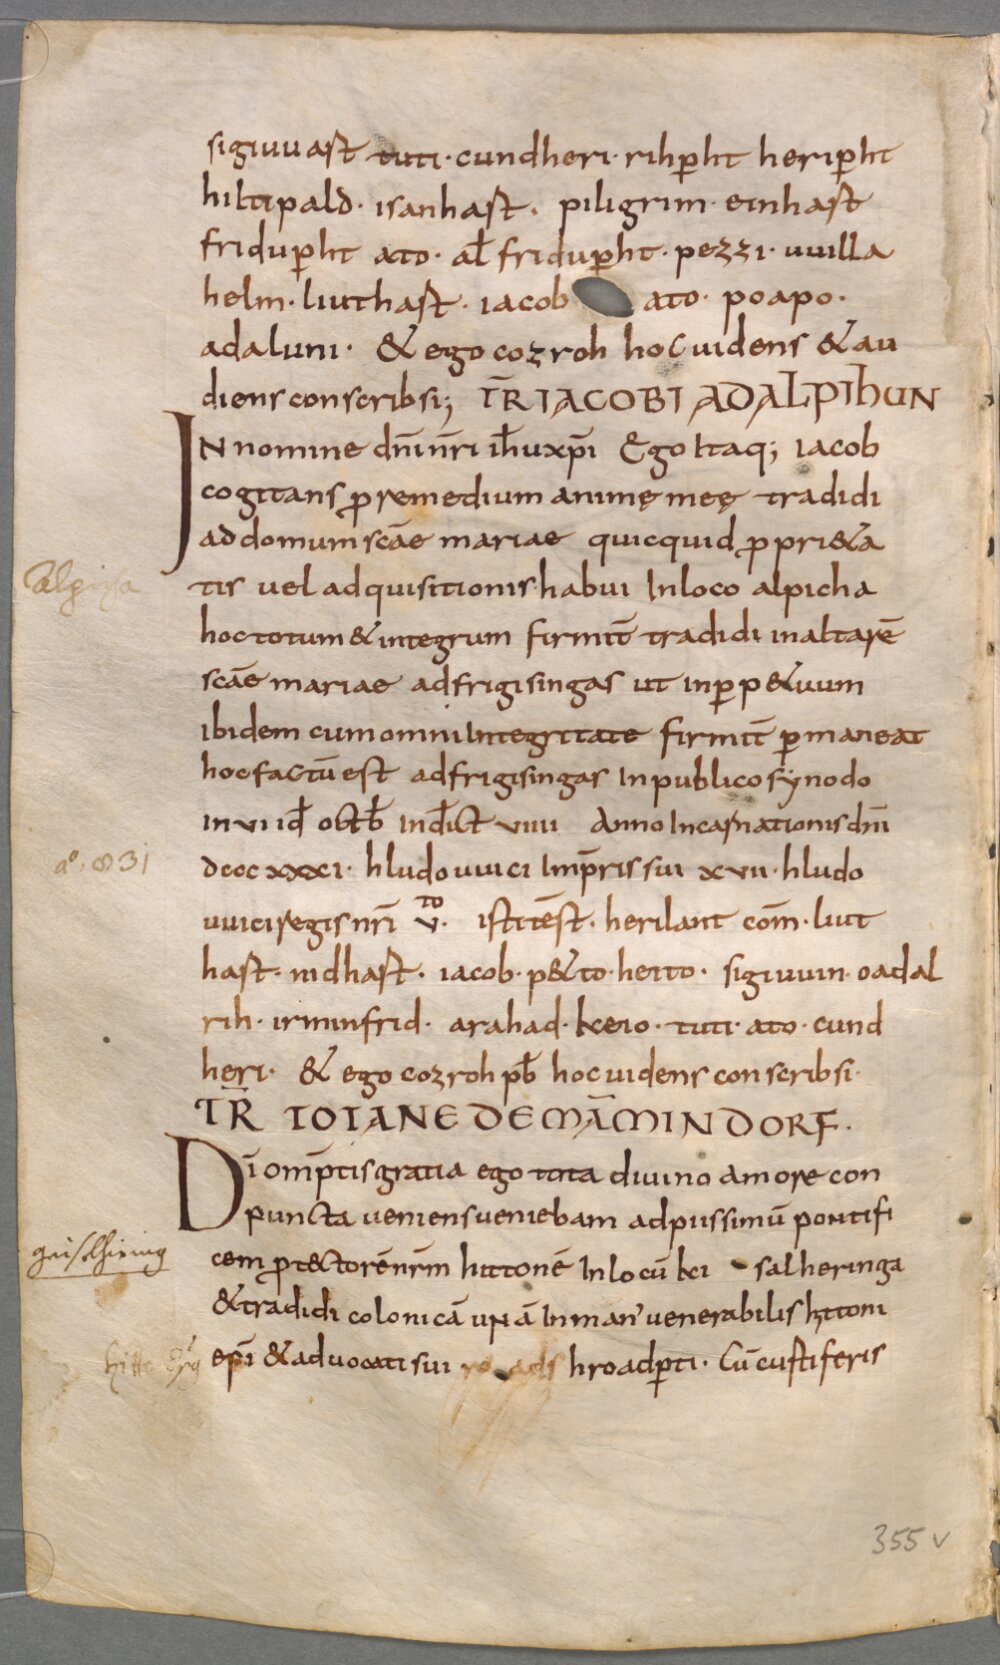 sigiuuast tuti · cundheri · rihp̄ht herip̄ht
hiltipald · isanhast · piligrim · einhast
fridup̄ht ato · al̄ fridup̄ht · pezzi · uuilla
helm · liuthast · iacob ato · poapo ·
adaluni · & ego cozroh hoc uidens & au
diens conscribsi; TR̄ IACOBI AD ALPIHUN
IN nomine dn̄i nr̄i ih̄u xp̄i Ego itaq; iacob
cogitans ꝓ remedium animę meę tradidi
ad domum scāe mariae quicquid ꝓpri&a
tis uel adquisitionis habui In loco alpicha
hoc totum & integrum firmit̄ tradidi in altarē
scāe mariae ad frigisingas ut inꝑp&uum
ibidem cum omni Integritate firmit̄ ꝑmaneat
hoc factū est ad frigisingas In publico synodo
in vi id̄ octb̄ Ind̄ict viiii Anno Incarnationis dn̄i
dccc xxxi · hludouuici Imp̄ris sui xvii · hludo
uuici regis nr̄i v · to isti tēst · herilant com̄ · liut
hast · nidhast · iacob · p&to · heito · sigiuuin · oadal
rih · irminfrid · arahad · keio · tuti · ato · cund
heri · & ego cozroh pb̄ hoc uidens conscribsi ·
TR̄ TOTANE DE MĀMINDORF ·
Dī omp̄tis gratia ego tota diuino amore con
puncta ueniens ueniebam ad piissimū pontifi
cem ꝓt&torē nr̄m hittonē In locū kei salheringa
& tradidi colonicā unā In man' uenerabilis hittoni
ep̄i & aduocati sui hroadꝑti · Cū custiferis
aº · 831
geiselhiring
355 v